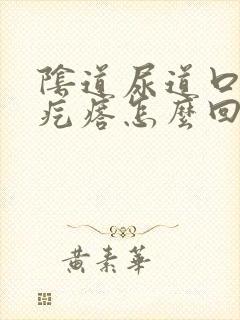 陰道尿道口
疙瘩怎麼回
黃素華